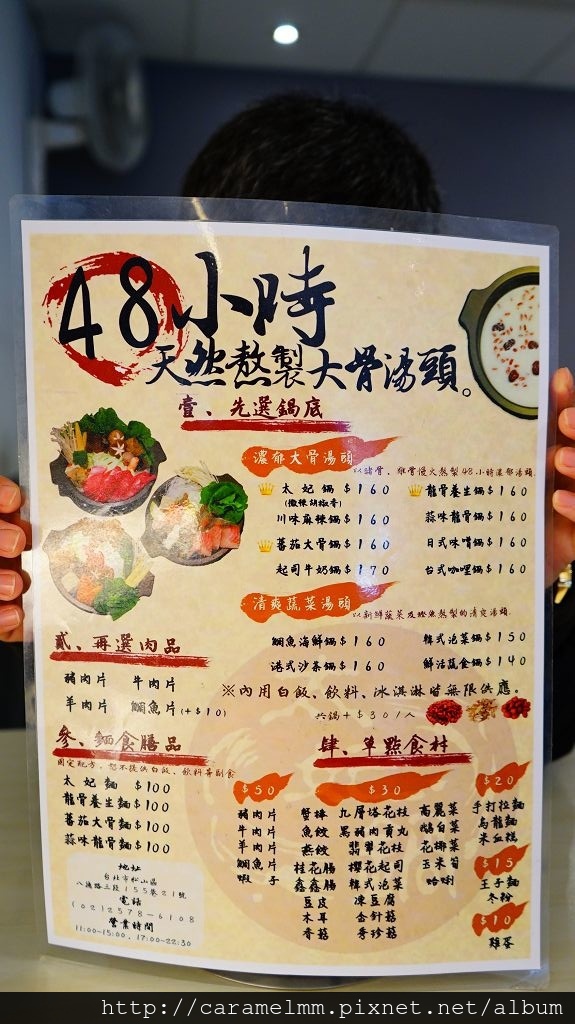 48小時
天然熬製大骨湯頭。
壹、先選鍋底
濃郁大骨湯頭
以豬骨、雞骨慢火熬製48小時濃郁湯頭.
太妃鍋$160
(微辣胡椒香)
龍骨養生鍋$160
川味麻辣鍋$160
蒜味龍骨鍋$160
蕃茄大骨鍋$160
日式味噌鍋$160
起司牛奶鍋$170
台式咖哩鍋$160
清爽蔬菜湯頭
鯛魚海鮮鍋$160
韓式泡菜鍋$150
港式沙茶鍋$160
鮮活蔬食鍋$140
※內用白飯、飲料、冰淇淋皆無限供應。
共鍋+$30/人
貳、再選肉品
豬肉片 牛肉片
羊肉片 鯛魚片(+$10)
參、麵食膳品
固定配方,恕不提供白飯、飲料等副食
太妃麵$100
龍骨養生麵$100
蕃茄大骨麵$100
蒜味龍骨麵$100
肆、單點食材
$50
豬肉片
牛肉片
羊肉片
鯛魚片
蝦子
$30
蟹棒 九層塔花枝 高麗菜
魚餃 黑豬肉貢丸
燕餃 翡翠花枝 花椰菜
桂花腸 櫻花起司 玉米筍
鑫鑫腸 韓式泡菜 蛤蜊
豆皮 凍豆腐
木耳 金針菇
香菇 秀珍菇
$20
手打拉麵
烏龍麵
米血糕
$15
王子麵
冬粉
$10
雞蛋
地址
台北市松山區
八德路三段155巷21號
電話
(02)2578-6108
營業時間
11:00~15:00、17:00~22:30
http://caramelmm.pixnet.net/album